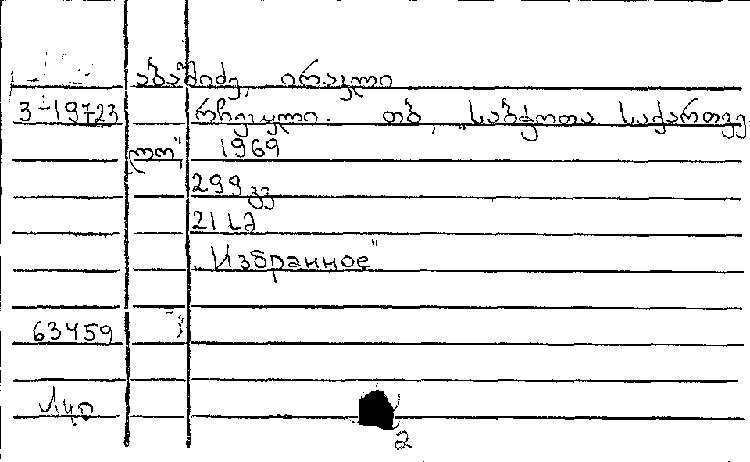 აბაშიძე, ირაკლი
3-19723 რჩეული. თბ, „საბჭოთა საქართვე-
ლო" 1969
299 გვ
21 სმ
Избранное"
63459
2